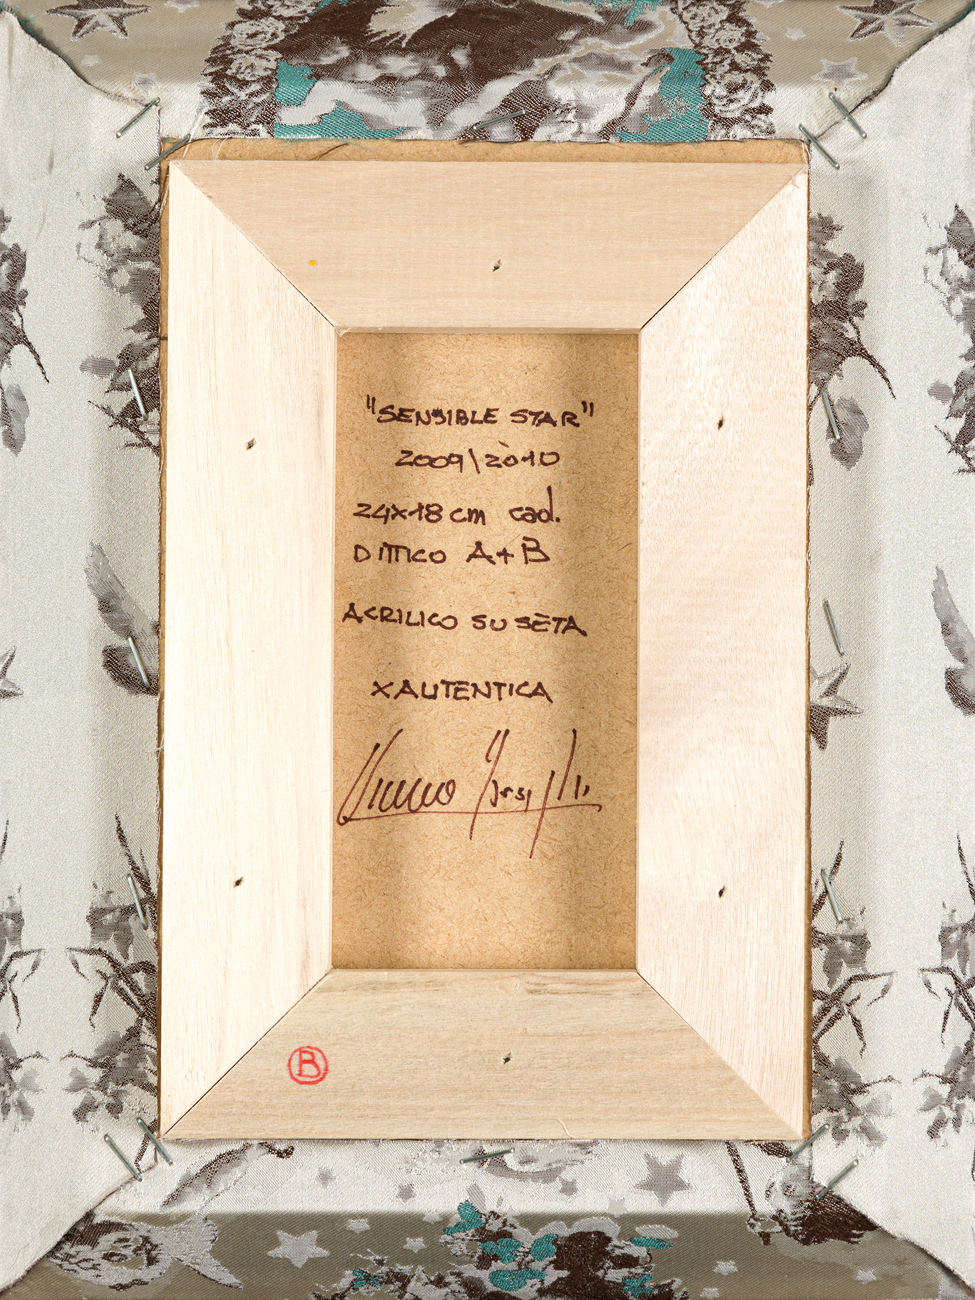 "SENSIBLE STAR"
2009\2010
24x18 cm cad.
DITTICO A+B
ACRILICO SU SETA
X AUTENTICA
B